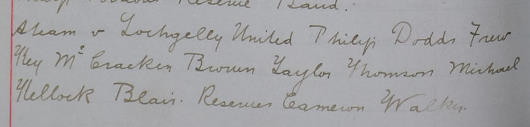 Reserve Band.
Team v Lochgelly United Philip Dodds Frew
Key McCracken Brown Taylor Thomson Michael
Kellock Blair. Reserves Cameron Walker